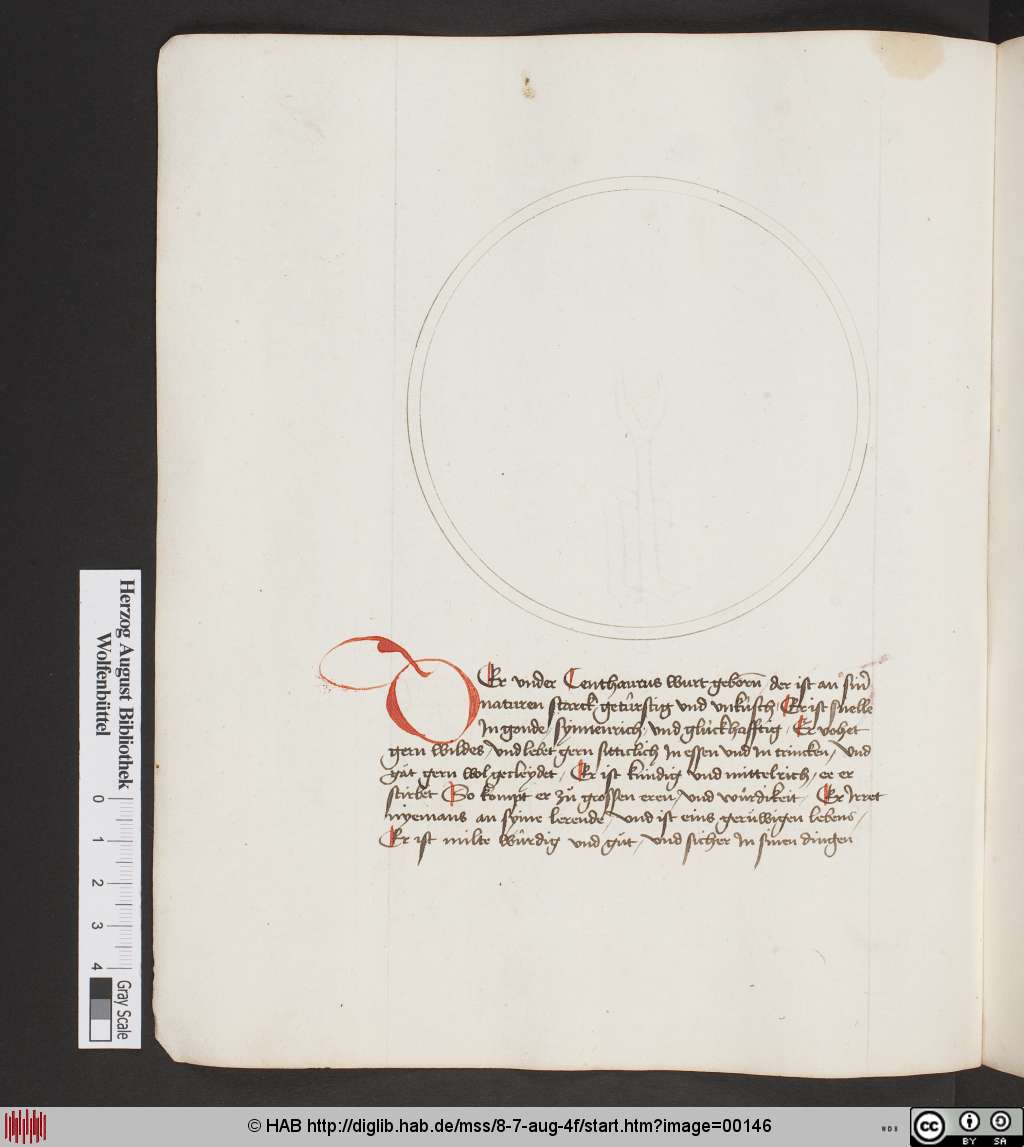 DEr vnder Centhaurus wurt geborñ der ist an sinẽ
naturen starck getürstig vnd vnküsch Er ist snelle
In gonde synnenrich vnd glückhafftig Er vohet
gern wildes vnd lebet gern sitticlich In essen vnd In trincken vnd
gät gern wol gecleydet Er ist kündig vnd mittelrich er er
stirbet So kompt er zů grossen eren vnd würdikeit Er Irret
nyemans an syme lerende vnd ist eins gerüwigen lebens
Er ist milte würdig vnd güt vnd sicher In sinen dingen
Herzog August Bibliothek
Wolfenbüttel
0 1 2 3 4
Gray Scale
© HAB http://diglib.hab.de/mss/8-7-aug-4f/start.htm?image=00146
WDB
cc BY SA